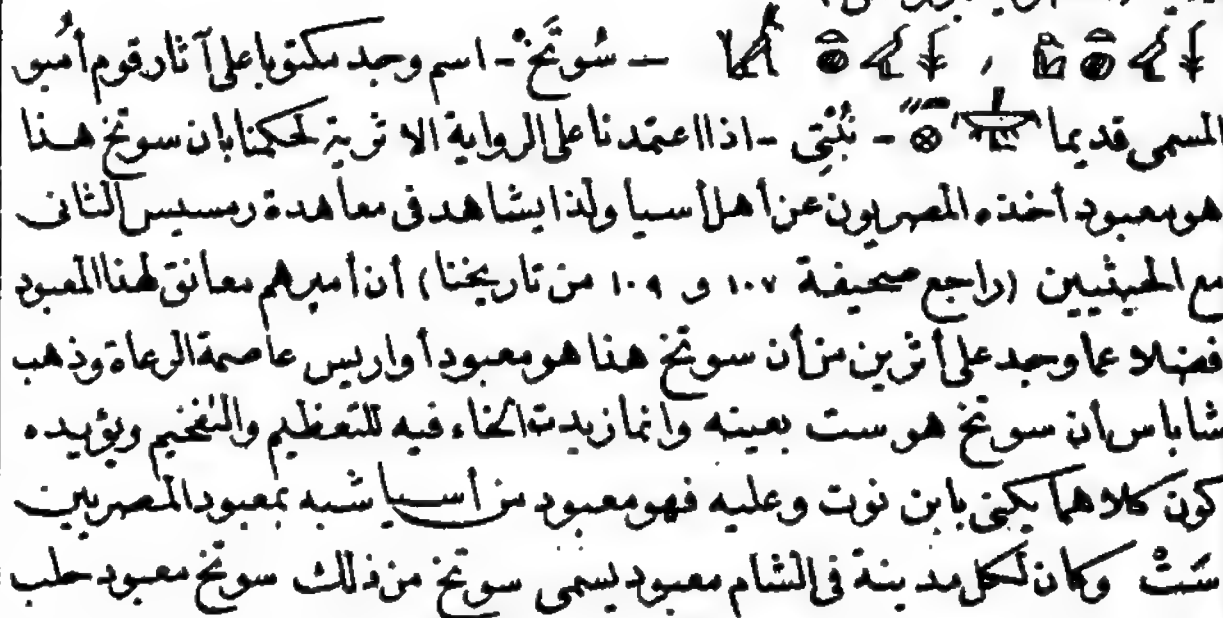 — سُوتَخْ - اسم وجد مكتوبا على آثار قوم أمبو
المسمى قديما - نُبْتِي - اذا اعتمدنا على الرواية الاثرية لحكمنا بان سوتخ هذا
هو معبود أخذه المصريون عن أهل أسيا ولذا يشاهد فى معاهدة رمسيس الثانى
مع الحيثيين (راجع صحيفة ١٠٧ و ١٠٩ من تاريخنا) أن أميرهم معانق لهذا المعبود
فضلا عما وجد على أثرين من أن سوتخ هذا هو معبود أواريس عاصمة الرعاة وذهب
شاباس أن سوتخ هو ست بعينه وانما زيدت الخاء فيه للتعظيم والتفخيم ويؤيده
كون كلاهما يكنى بابن نوت وعليه فهو معبود من أسيا شبه بمعبود المصريين
سَتْ وكان لكل مدينة فى الشام معبود يسمى سوتخ من ذلك سوتخ معبود حلب